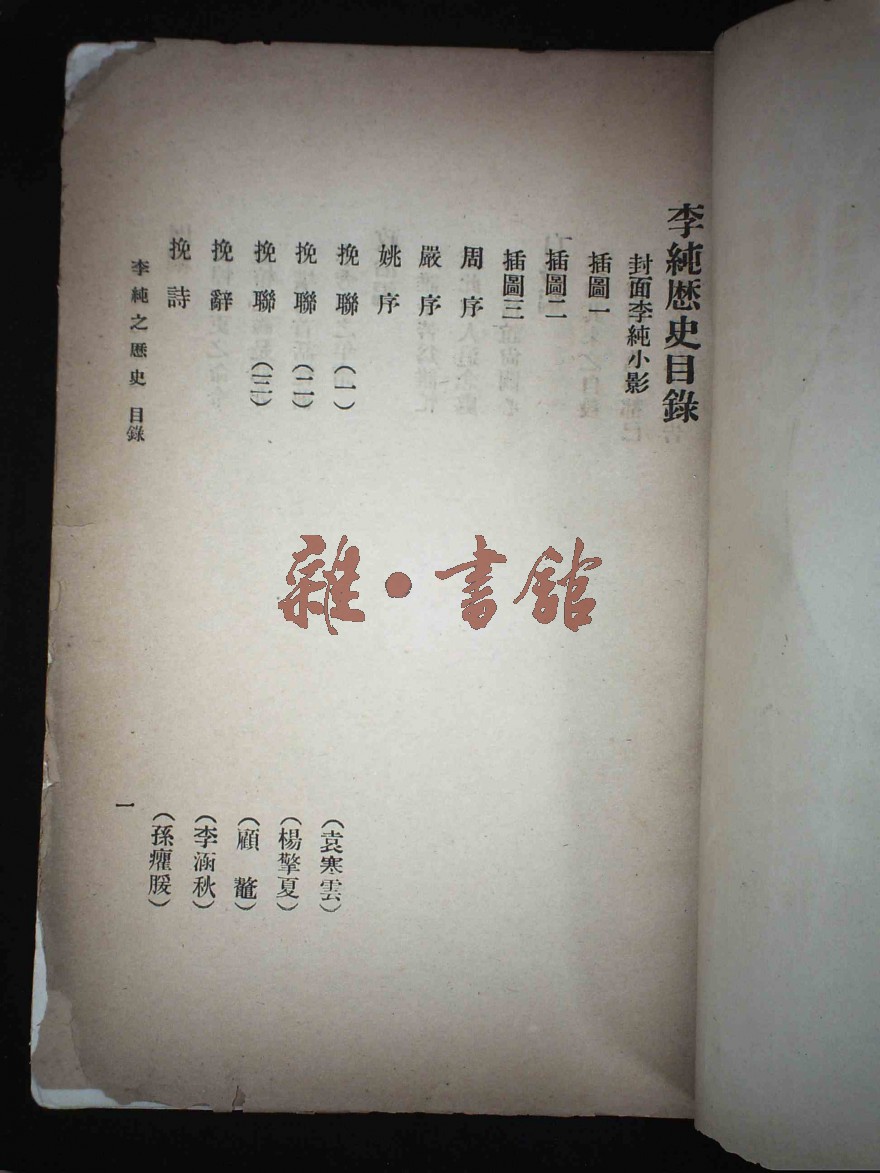 李純歷史目錄
封面李純小影
插圖一
插圖二
插圖三
周序
嚴序
姚序
挽聯（一）（袁寒雲）
挽聯（二）（楊擎夏）
挽聯（三）（顧鼇）
挽辭（李涵秋）
挽詩（孫癯腰）
李純之歷史 目錄
一
雜•書館